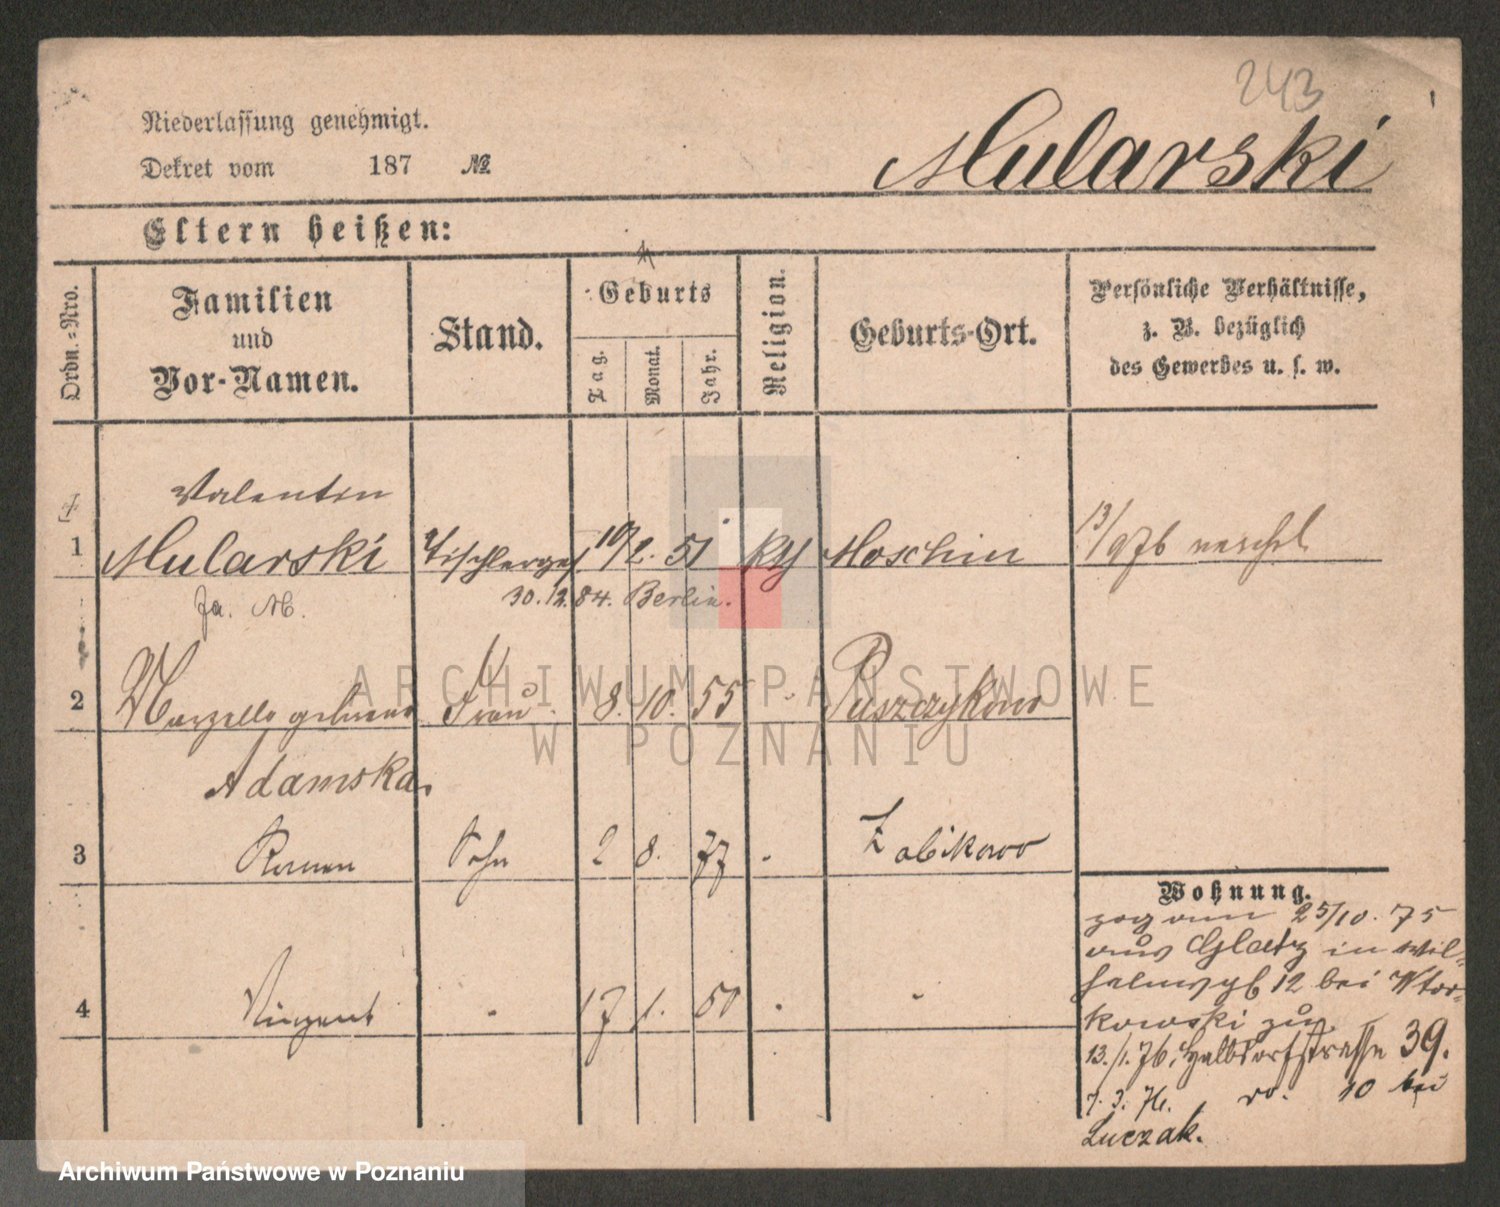 243
Niederlassung genehmigt.
Dekret vom 187 №
Mularski
Eltern heißen:
Ordn.-Nro.
Familien
und
Vor-Namen.
Stand.
Geburts
Tag.
Monat.
Jahr.
Religion.
Geburts-Ort.
Persönliche Verhältnisse,
z. B. bezüglich
des Gewerbes u. s. w.
Valentin
1 Mularski Tischlerges 19/2. 51 kth Moschin 13/976 verehel
Fa. M. 30.12.84. Berlin.
2 geborene Frau 8. 10. 55 Puszczykowo
Adamska.
3 Roman Sohn 2 8. 77 Zabikowo
4 Vinzent 17 1. 80
Wohnung.
zog am 25/10. 75
aus Glatz in Wil-
helmspl 12 bei Wtor-
kowski zu,
13./1.76, Halbdorfstrasse 39.
7. 3. 76. ro. 10 bei
Luczak.
ARCHIWUM PAŃSTWOWE
W POZNANIU
Archiwum Państwowe w Poznaniu